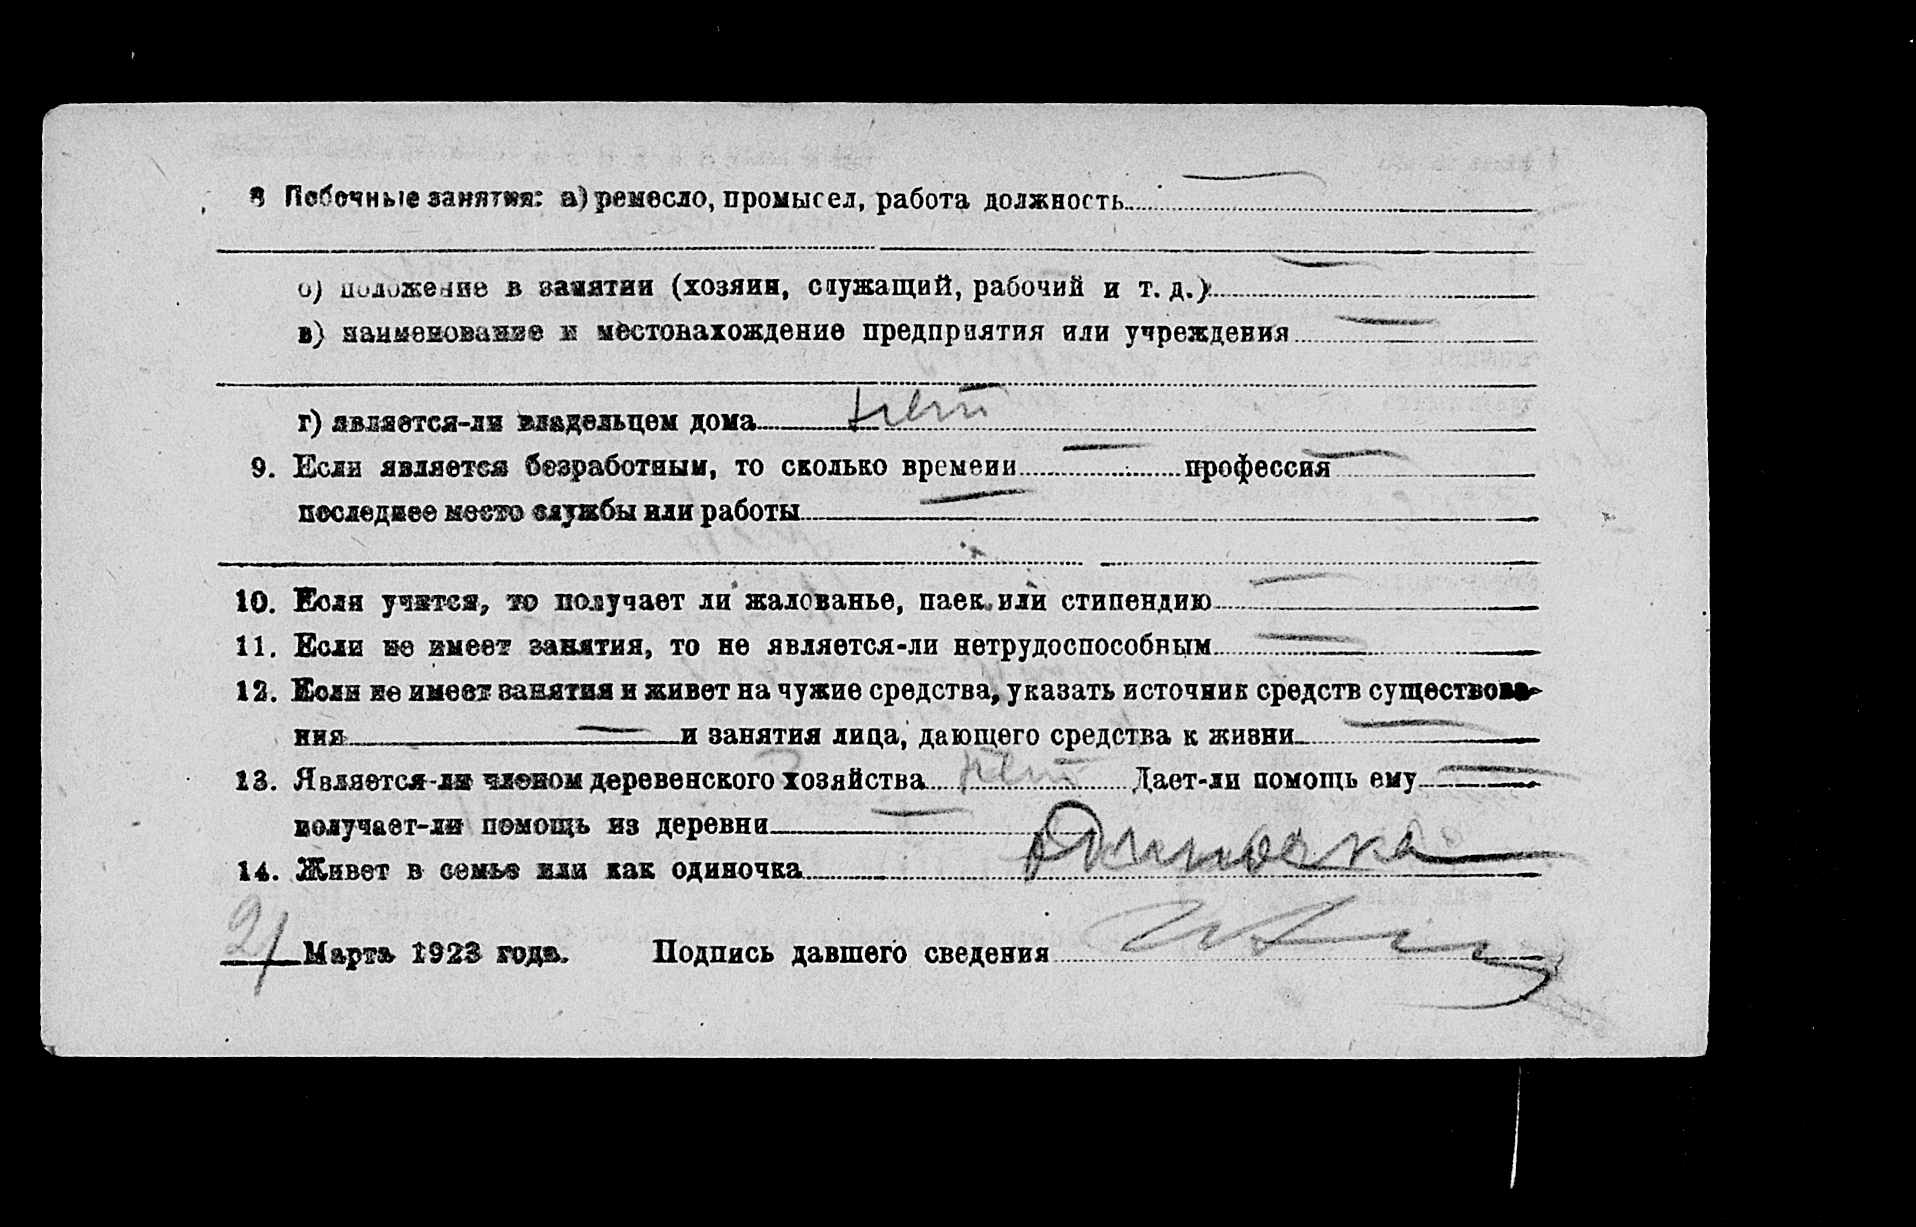 8 Побочные занятия: а) ремесло, промысел, работа должность —
б) положение в занятии (хозяин, служащий, рабочий и т. д.) —
в) наименование и местонахождение предприятия или учреждения —
г) является-ли владельцем дома нет
9. Если является безработным, то сколько времени — профессия —
последнее место службы или работы —
10. Если учится, то получает ли жалованье, паек или стипендию —
11. Если не имеет занятия, то не является-ли нетрудоспособным —
12. Если не имеет занятия и живет на чужие средства, указать источник средств существова-
ния — и занятия лица, дающего средства к жизни —
13. Является-ли членом деревенского хозяйства нет Дает-ли помощь ему —
получает-ли помощь из деревни —
14. Живет в семье или как одиночка Одиночка
21 Марта 1923 года. Подпись давшего сведения